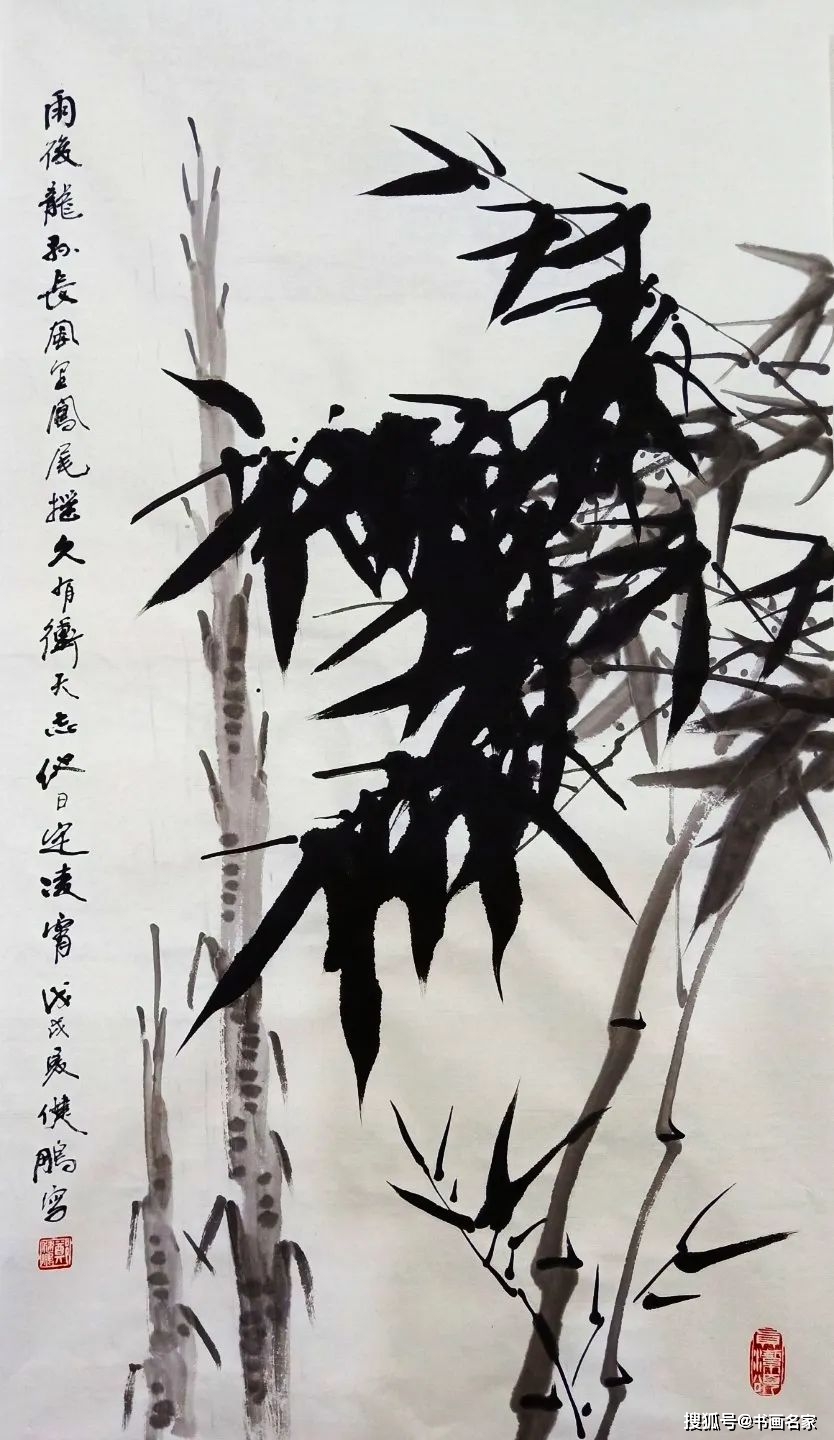 雨後龍孙長風里鳳尾摇久有衝天志他日定凌霄戊戌夏健鵬写
搜狐号@书画名家